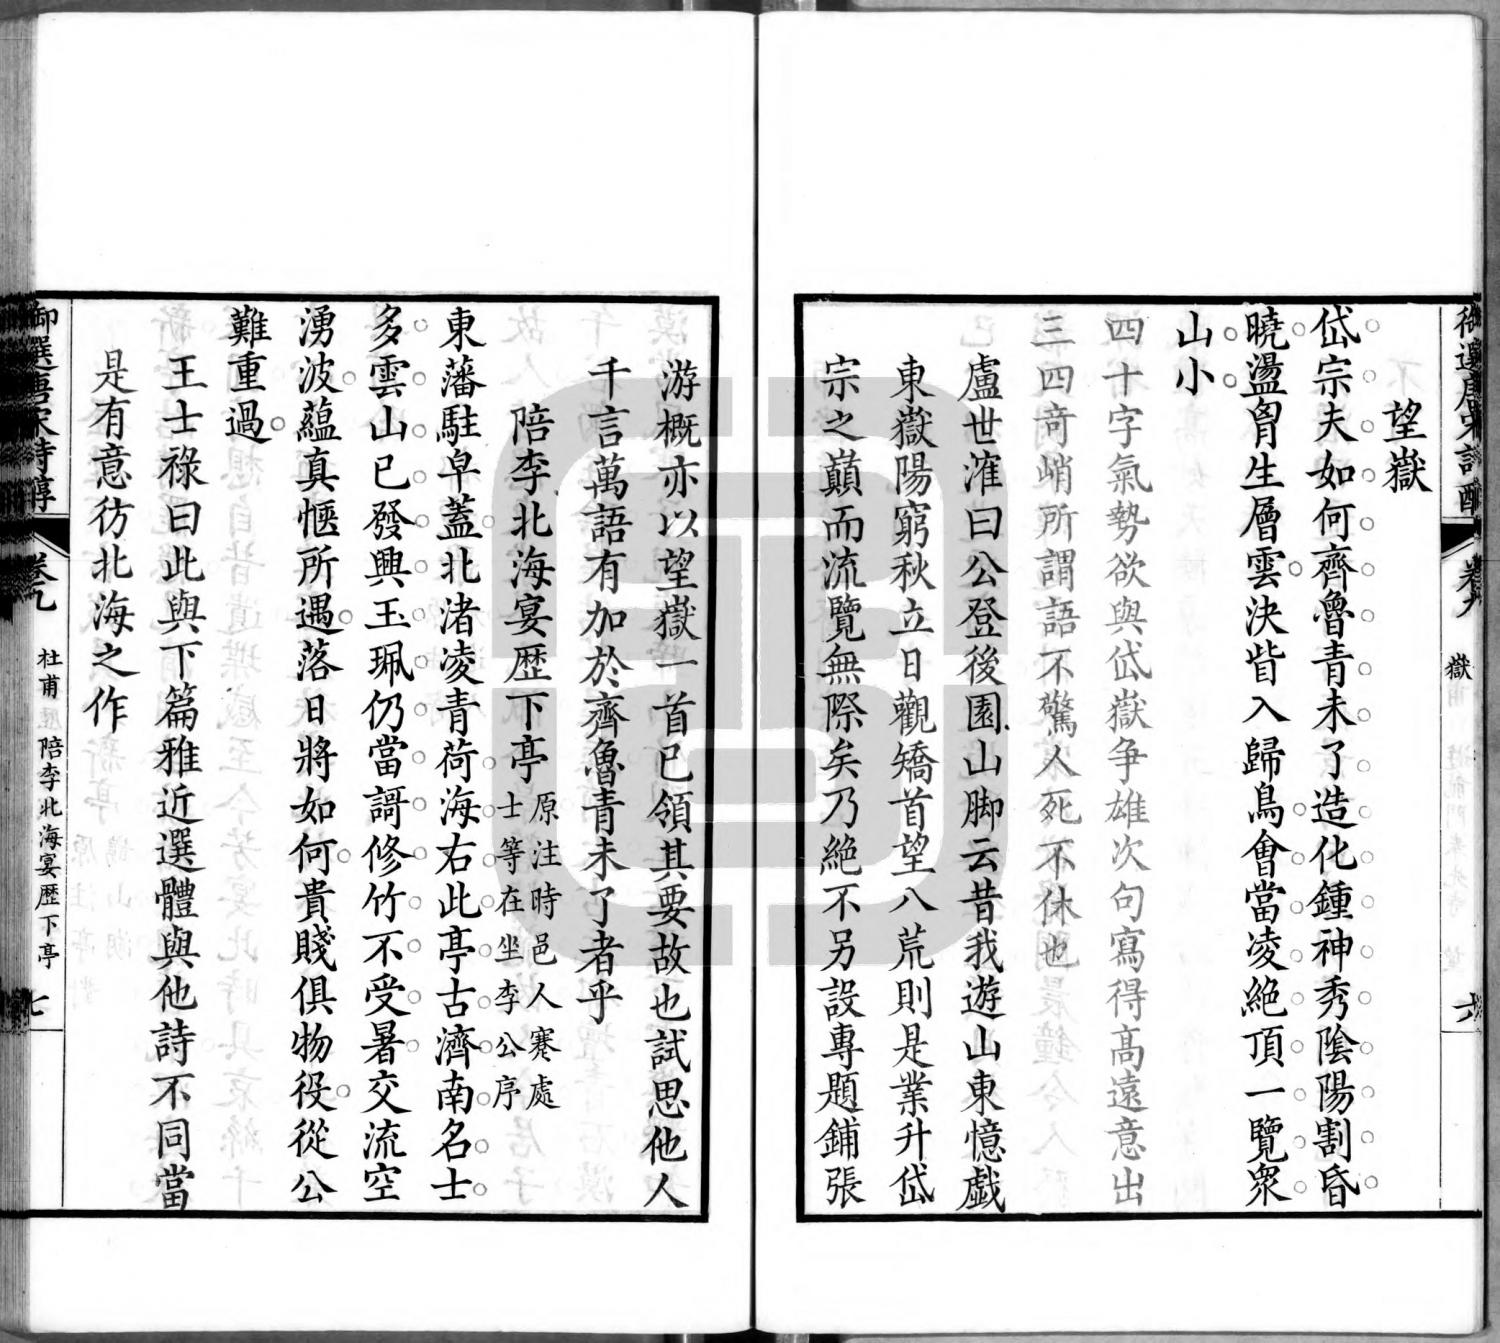 望嶽
岱宗夫如何齊魯青未了造化鍾神秀陰陽割昏
曉盪胷生層雲決眥入歸鳥會當凌絶頂一覽衆
山小
四十字氣勢欲與岱嶽争雄次句寫得髙遠意出
三四竒峭所謂語不驚人死不休也
盧世㴶曰公登後園山脚云昔我遊山東憶戲
東嶽陽窮秋立日觀矯首望八荒則是業升岱
宗之巔而流覽無際矣乃絶不另設專題鋪張
嶽
六
游概亦以望嶽一首已領其要故也試思他人
千言萬語有加於齊魯青未了者乎
陪李北海宴歴下亭 原注時邑人蹇處
士等在坐李公序
東藩駐皁蓋北渚凌青荷海右此亭古濟南名士
多雲山已發興玉珮仍當謌修竹不受暑交流空
湧波藴真愜所遇落日將如何貴賤俱物役從公
難重過
王士禄曰此與下篇雅近選體與他詩不同當
是有意彷北海之作
御選唐宋詩醇
卷九
杜甫 陪李北海宴歴下亭
七